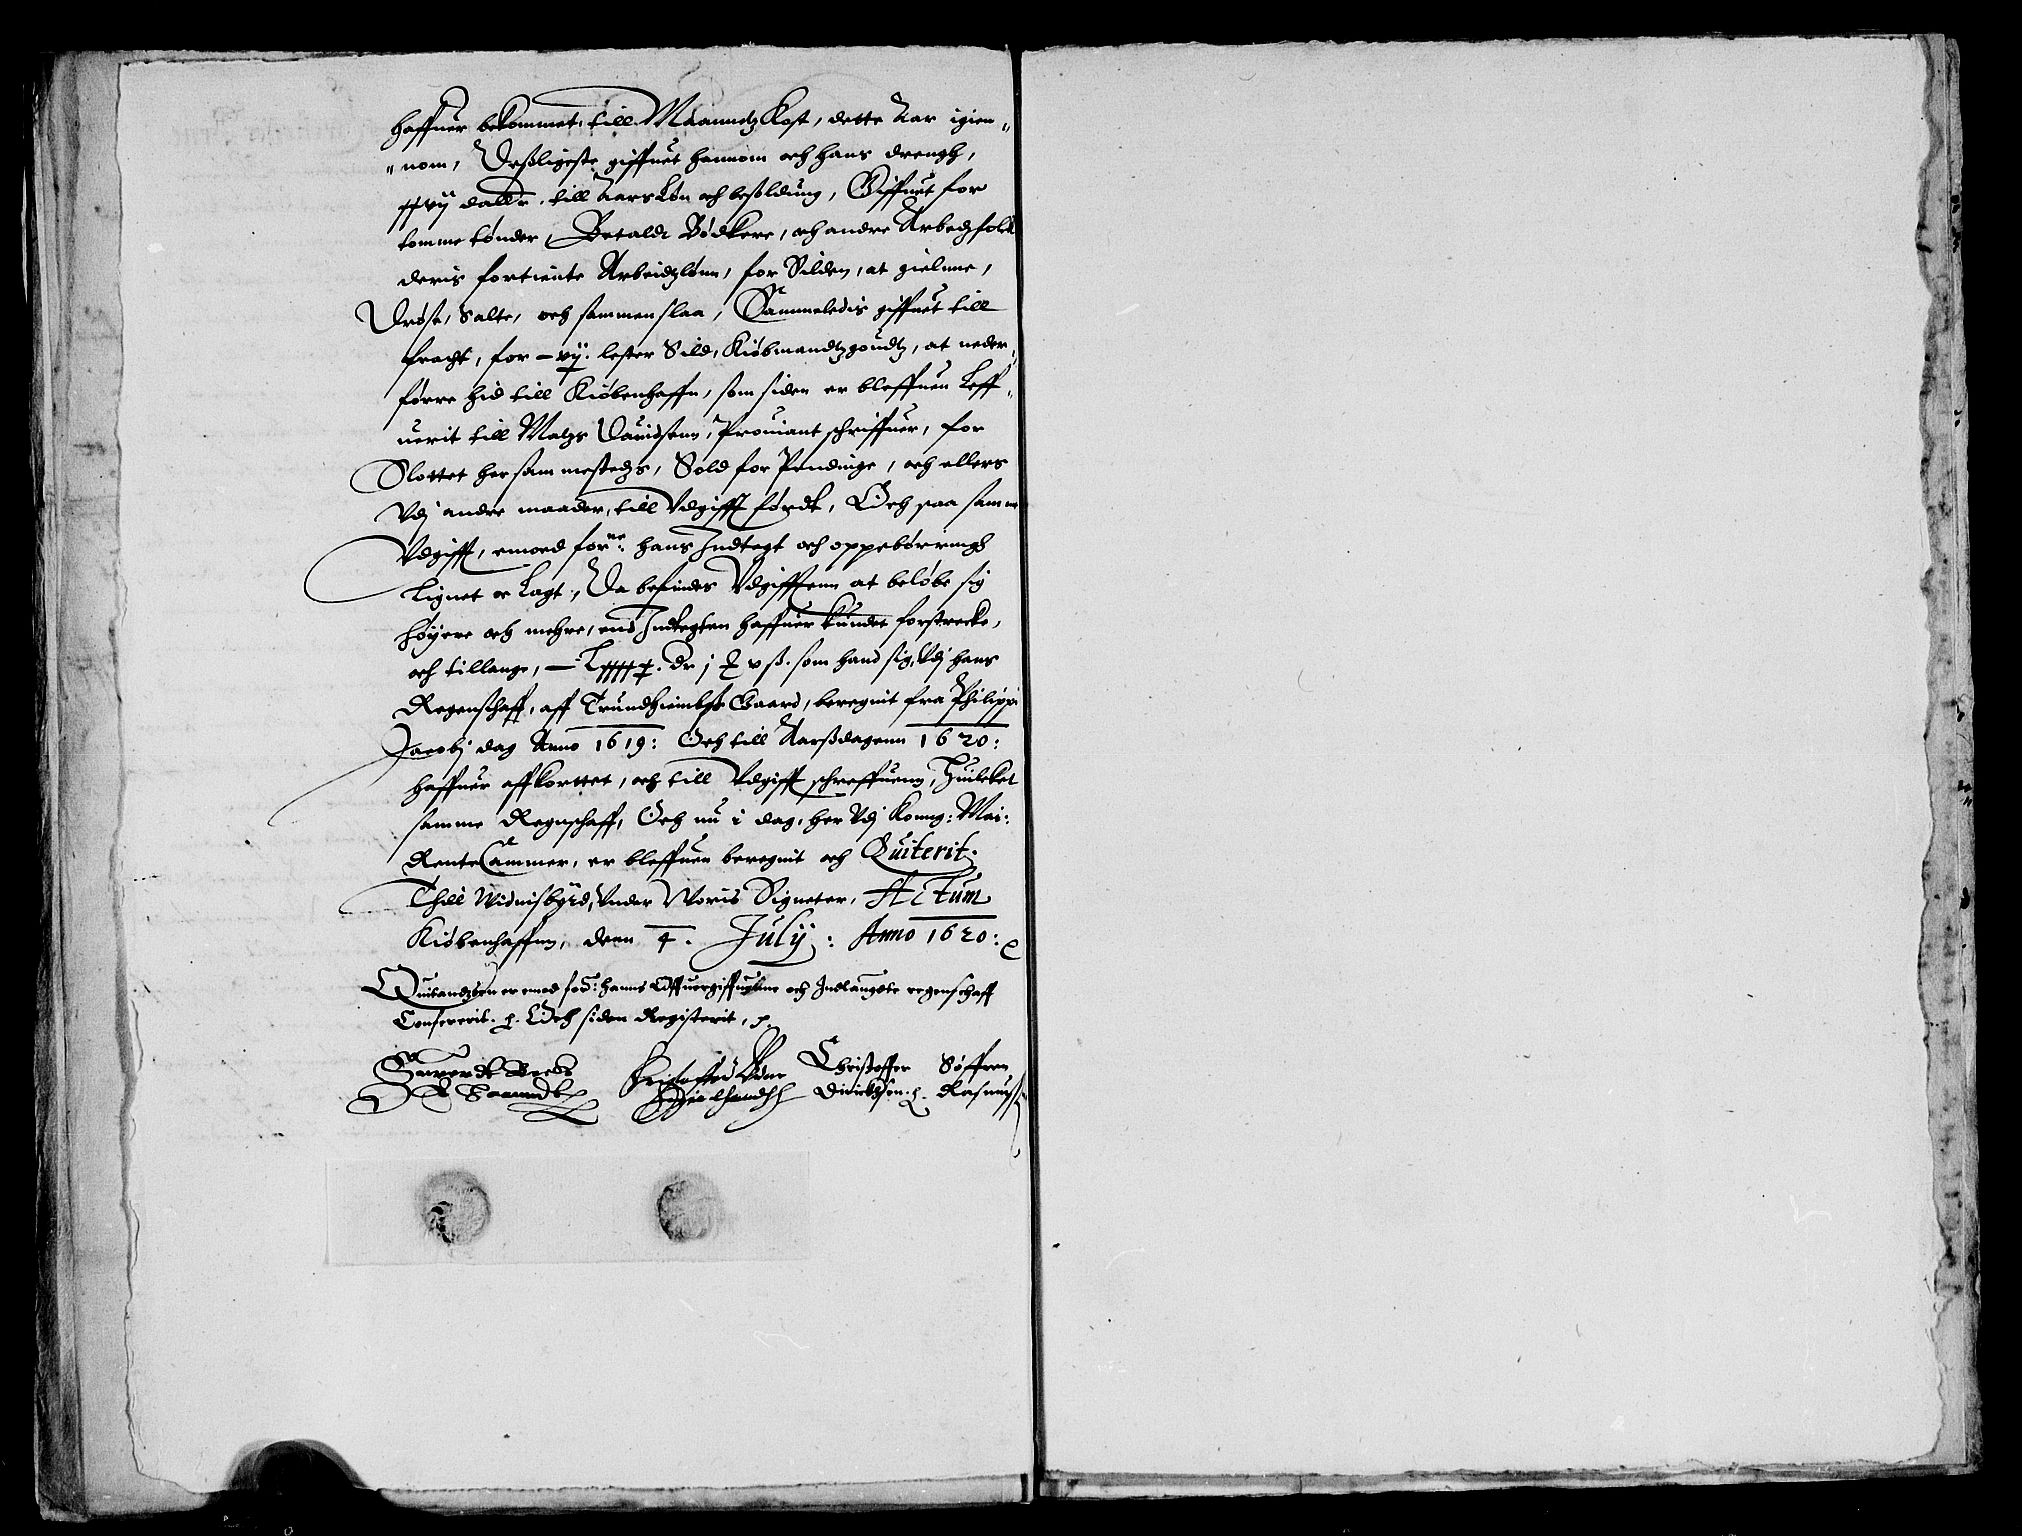 haffuer bekommet, till Maanuetz Kost, dette Aar igien-
-nom, Desligeste giffuet hannom och hans drengh,
daller. till Aarsløn och besoldung, Giffuet for
tomme tønder, Betaldt Bødkere, och andre Arbedzfolk
deris fortiente Arbeidzlønn, for Silden, at gielne,
Drøse, Salte, och sammenslaa, Sammeledis giffuet till
fracht, for - vij. lester Sild, Kiøbmandtzgoudtz, at neder-
førre hid till Kiøbenhaffn, som siden er bleffuen Leff-
uerit till Matzs Dauidsenn, Prouiantschriffuer, for
Slottet hersammestedzs, Sold for Pendinge, och ellers
Vdj andre maader, till Vdgifft førdt, Och paa samme
Vdgifft, emod forne: hans Indtegt och oppebørringh
Lignet oc Lagt, Da befindes Vdgifftenn at beløbe sig
høyere och mehre, end Indtegten haffuer kundet forstrecke,
och tillange, dr j ȝ v ß. som hand sig, Vdj hans
Regenschaff, aff Trundhiembs Gaard, beregnit fra Philippi
Jacobj dag Anno 1619: Och till Aarsdagenn 1620:
haffuer affkorttet, och till Vdgifft schreffuenn, Huilcket
samme Regnschaff, Och nu i dag, her Vdj Konng: Mai:
RenteCammer, er bleffuen beregnit och Quiterit.
Thill Widnisbyrd, Vnder Woris Signeter, Actum
Kiøbenhaffnn, denn 4. Julij: Anno 1620:
Quitandzen er emod ford: hanns Offuergiffuene och Indlangde regenschaff
Confererit. Och siden Registerit,
Siuerdt Beck Christoffer Søffren
Didrichsen. Rasmuss